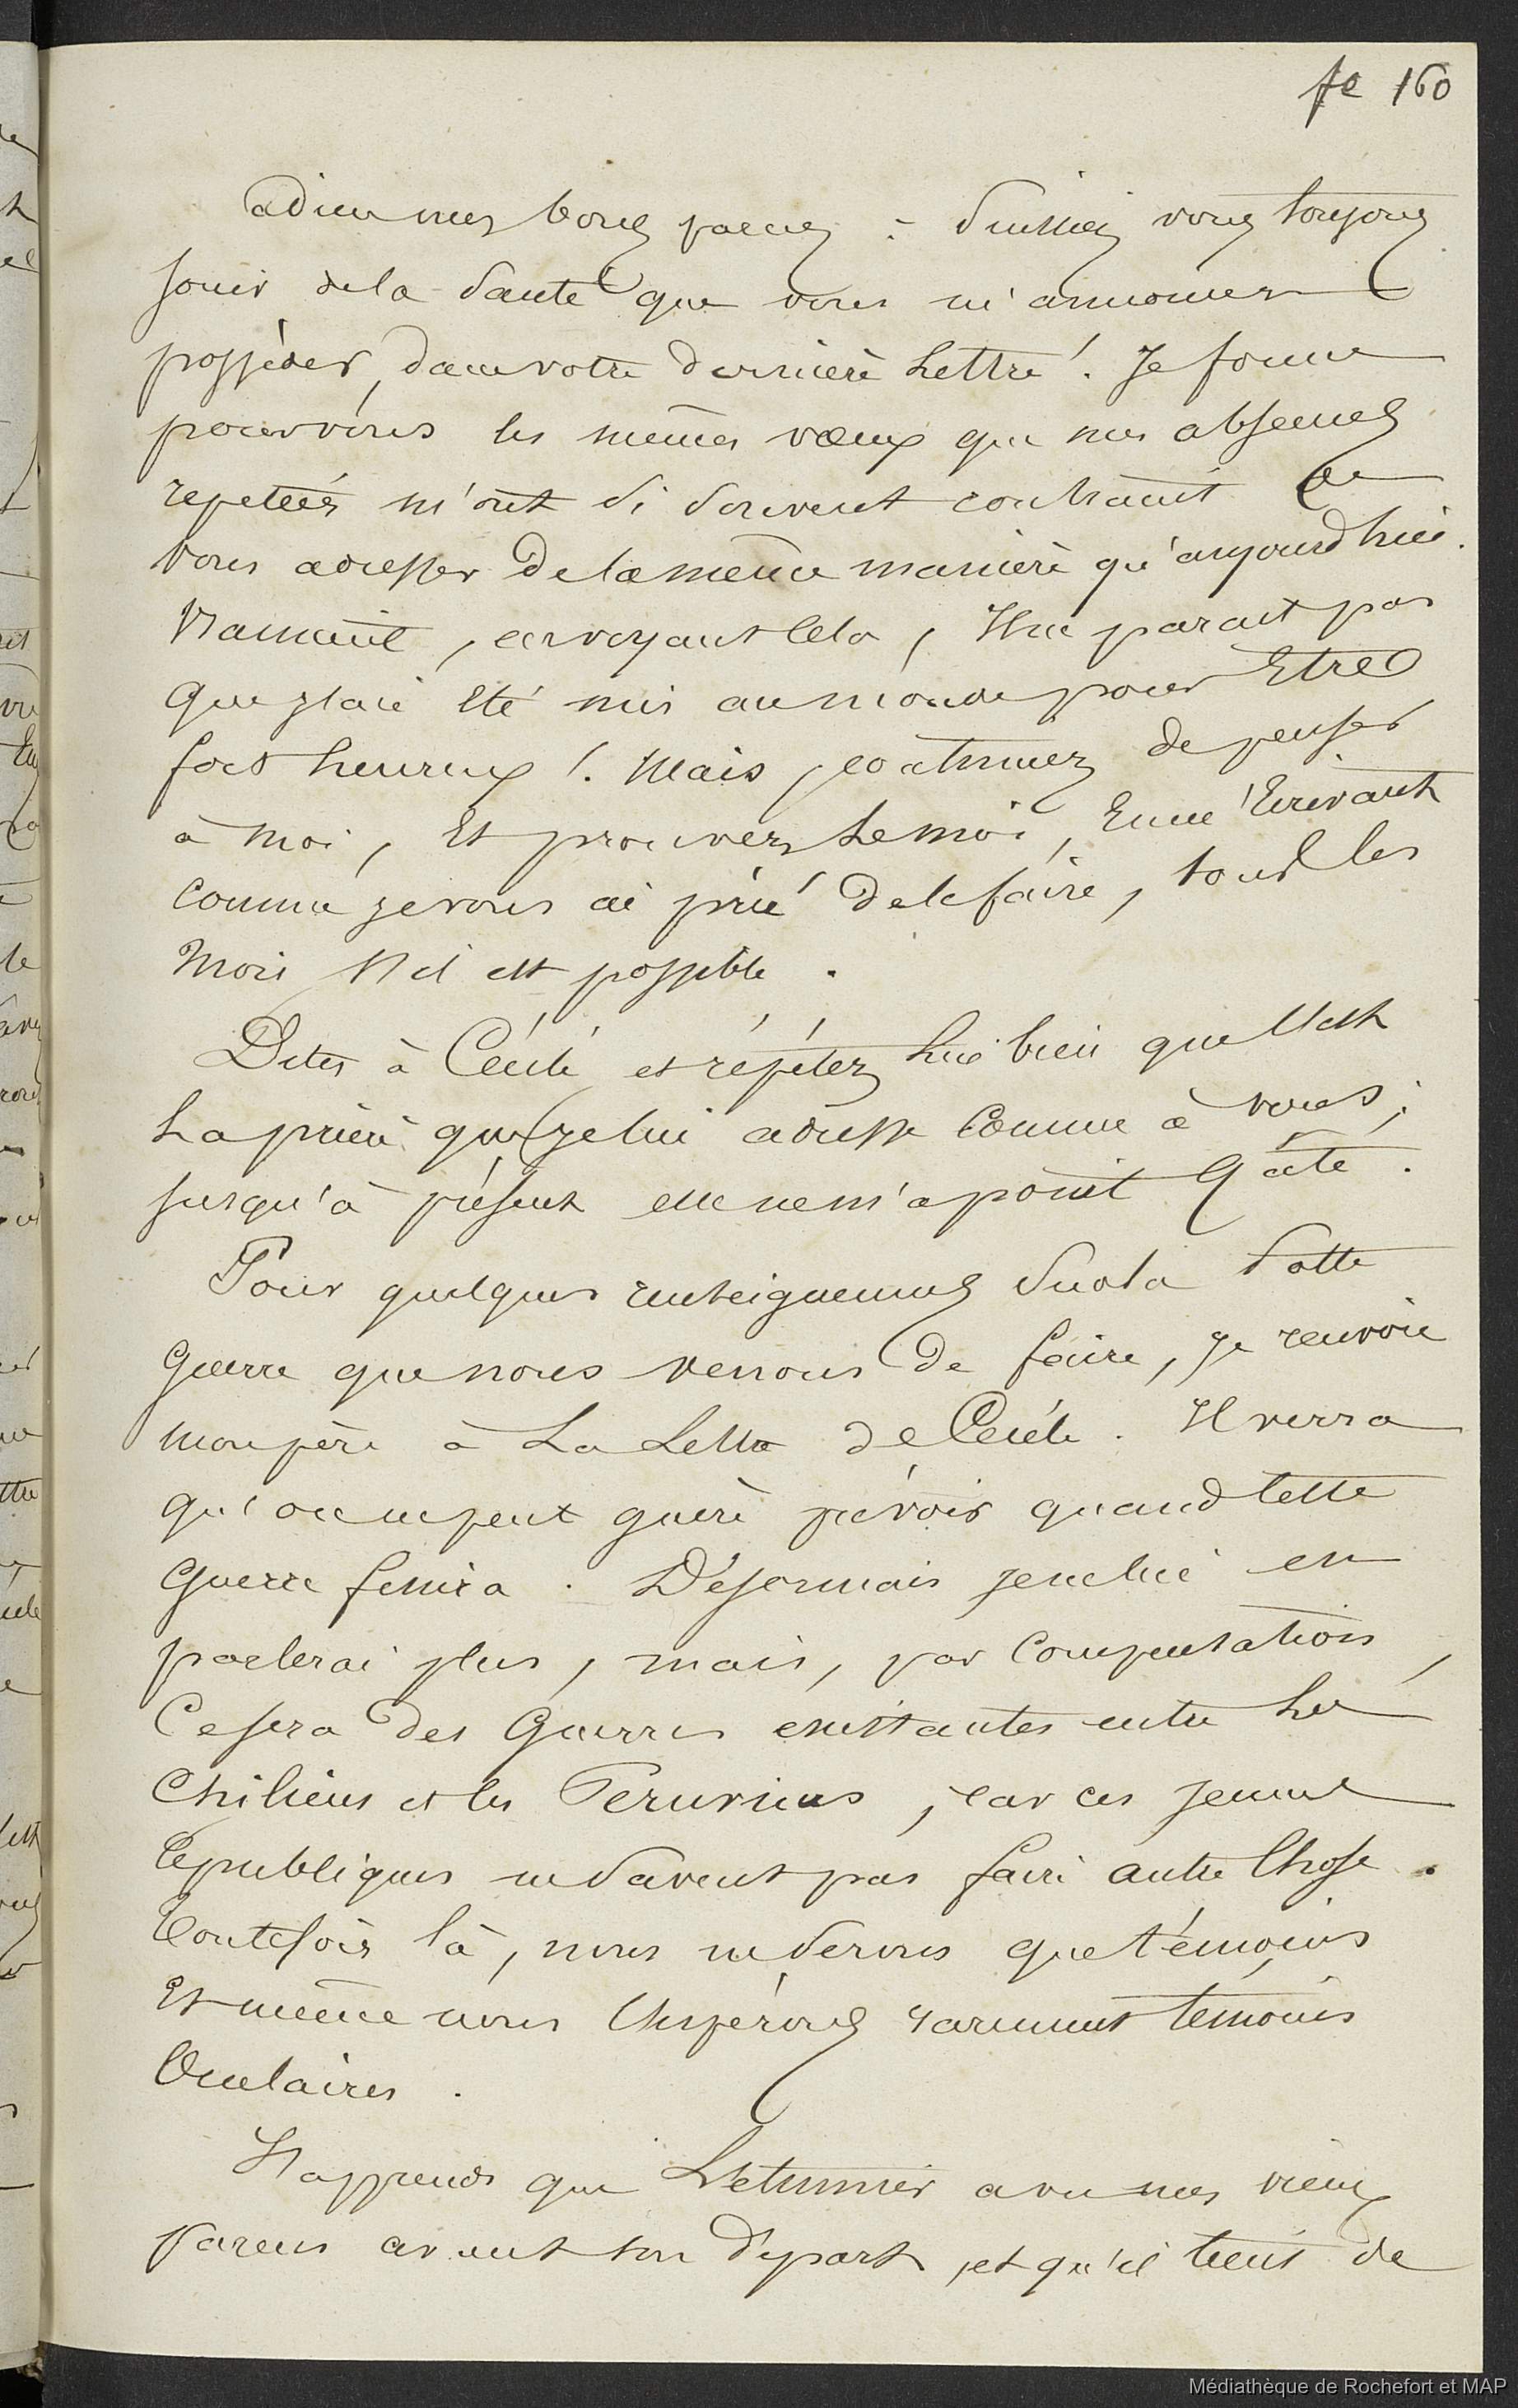 fe 160
adieu mes bons parens : Puissiez vous toujours
jouir de la Santé que vous m'annoncez
posséder, dans votre dernière Lettre! Je forme
pour vous les mêmes vœux que mes absences
repetées m'ont si souvent contraint de
vous adresser de la même manière qu'aujourdhui.
Vraiment, en voyant Cela, Il ne parait pas
que j'aie Eté mis au monde pour Etre
fort heureux!. Mais, continuez de penser
à moi, Et prouvez Le moi, En m'Ecrivant
comme je vous ai prié de le faire, tous les
mois s'il est possible.
Dites à Cécile et répétez Lui bien que C'est
La prière que je lui adresse Comme à vous;
jusqu'à présent elle ne m'a point Gâté.
Pour quelques renseignemens Sur la Sotte
Guerre que nous venons de faire, je renvoie
mon père à La Lettre de Cécile. Il verra
qu'on ne peut guère prévoir quand Cette
Guerre finira. Désormais je ne lui en
parlerai plus, mais, par Compensation,
Ce sera des Guerres existantes entre Les
Chiliens et les Peruviens, car ces jeunes
Republiques ne Savent pas faire autre Chose.
Toutefois là, nous ne Serons que témoins
Et même nous Espérons rarement témoins
Oculaires.
J'apprends que Létunnier a vu mes vieux
Parens avant son Départ, et qu'il tient de
Médiathèque de Rochefort et MAP